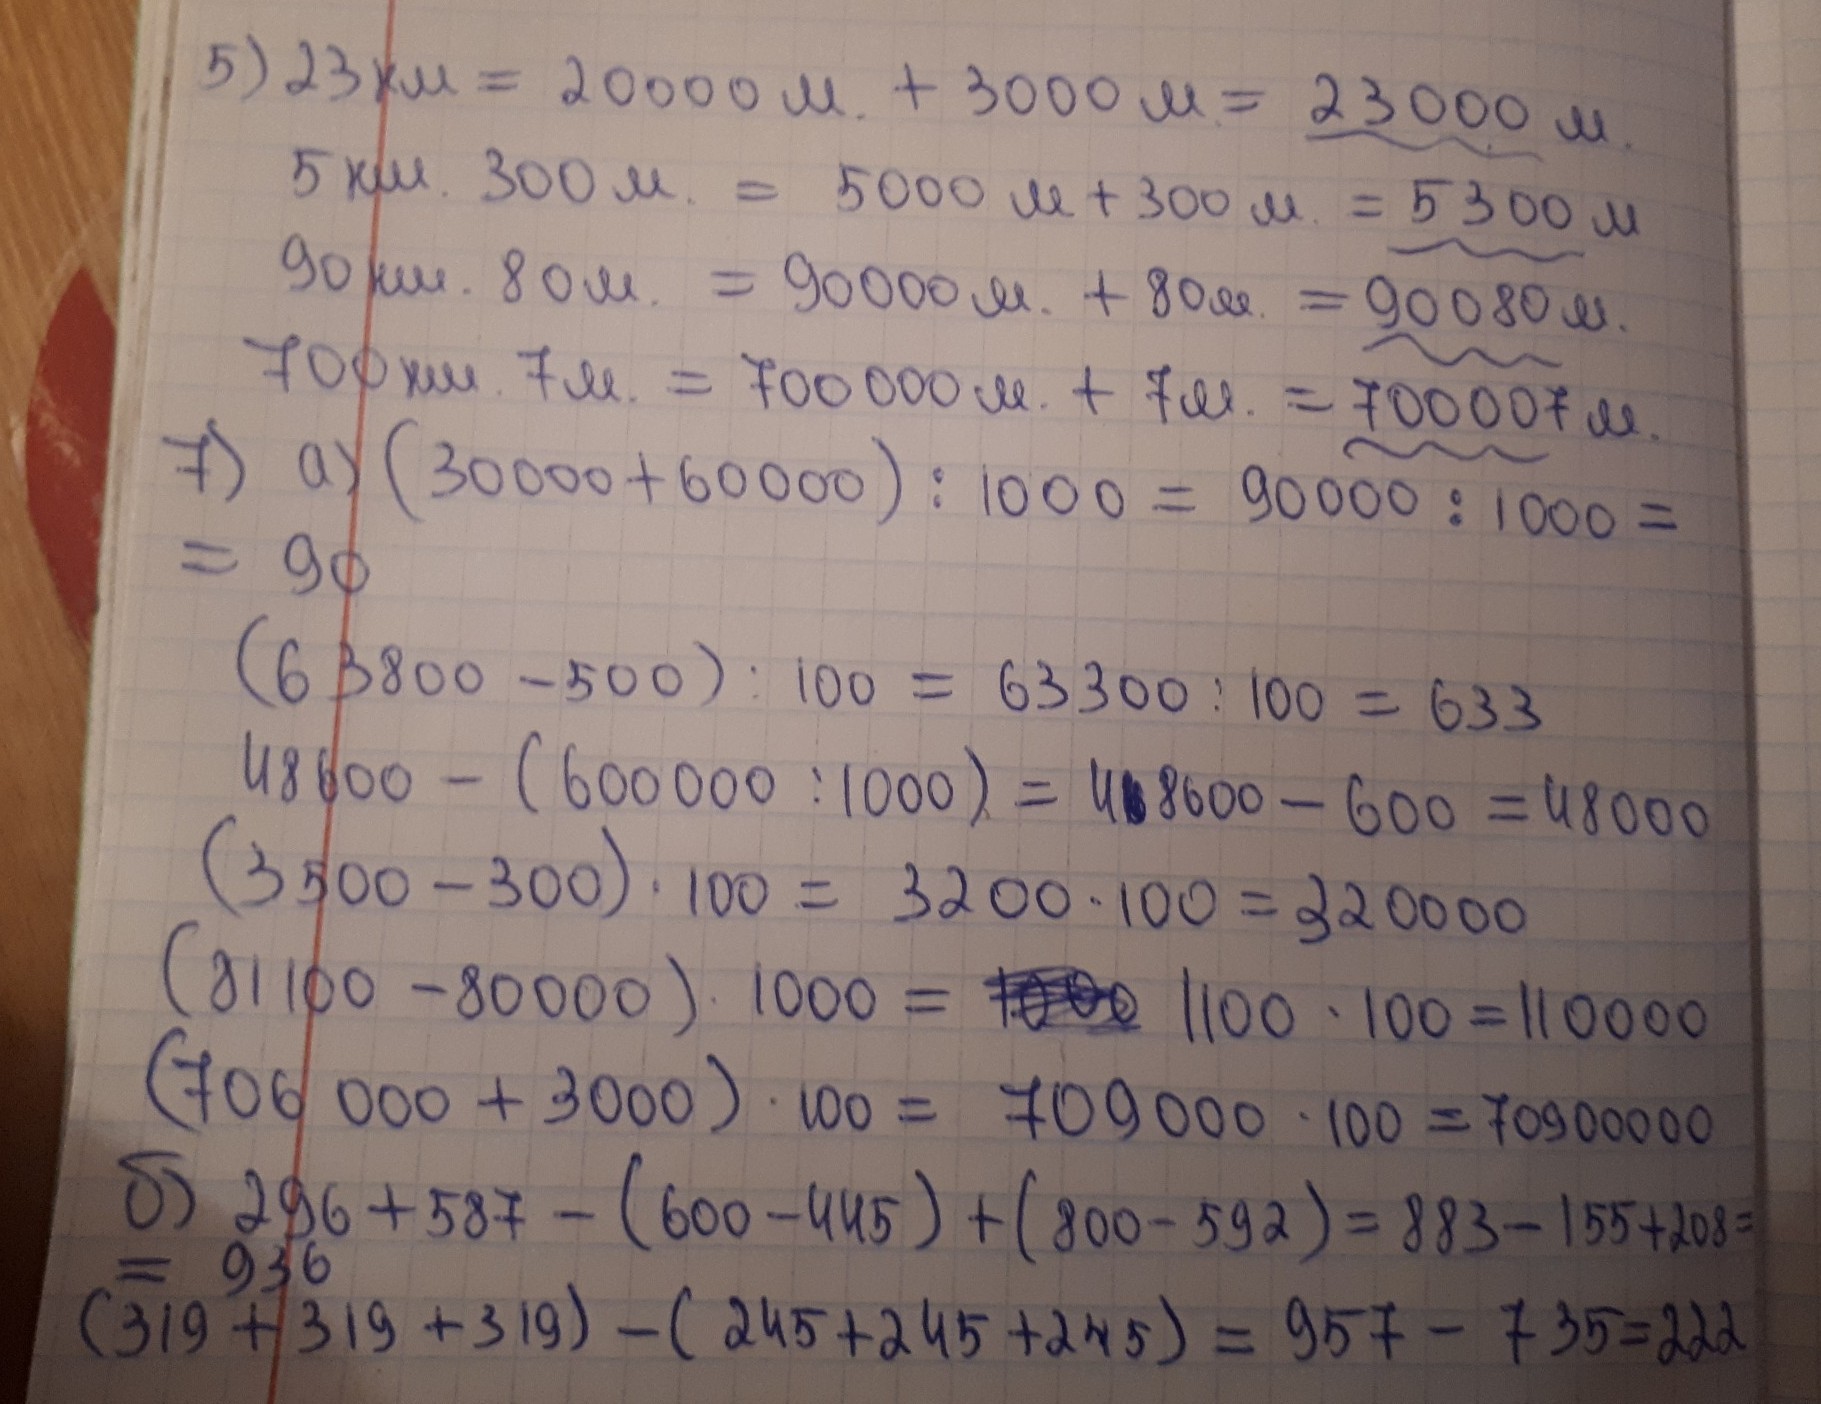 5) 23 км = 20000 м. + 3000 м. = 23000 м.
5 км. 300 м. = 5000 м + 300 м. = 5300 м
90 км. 80 м. = 90000 м. + 80 м. = 90080 м.
700 км. 7 м. = 700000 м. + 7 м. = 700007 м.
7) а) (30000 + 60000) : 1000 = 90000 : 1000 =
= 90
(63800 - 500) : 100 = 63300 : 100 = 633
48600 - (600000 : 1000) = 48600 - 600 = 48000
(3500 - 300) · 100 = 3200 · 100 = 320000
(81100 - 80000) · 1000 = 1100 · 100 = 110000
(706 000 + 3000) · 100 = 709000 · 100 = 70900000
б) 296 + 587 - (600 - 445) + (800 - 592) = 883 - 155 + 208 =
= 936
(319 + 319 + 319) - (245 + 245 + 245) = 957 - 735 = 222